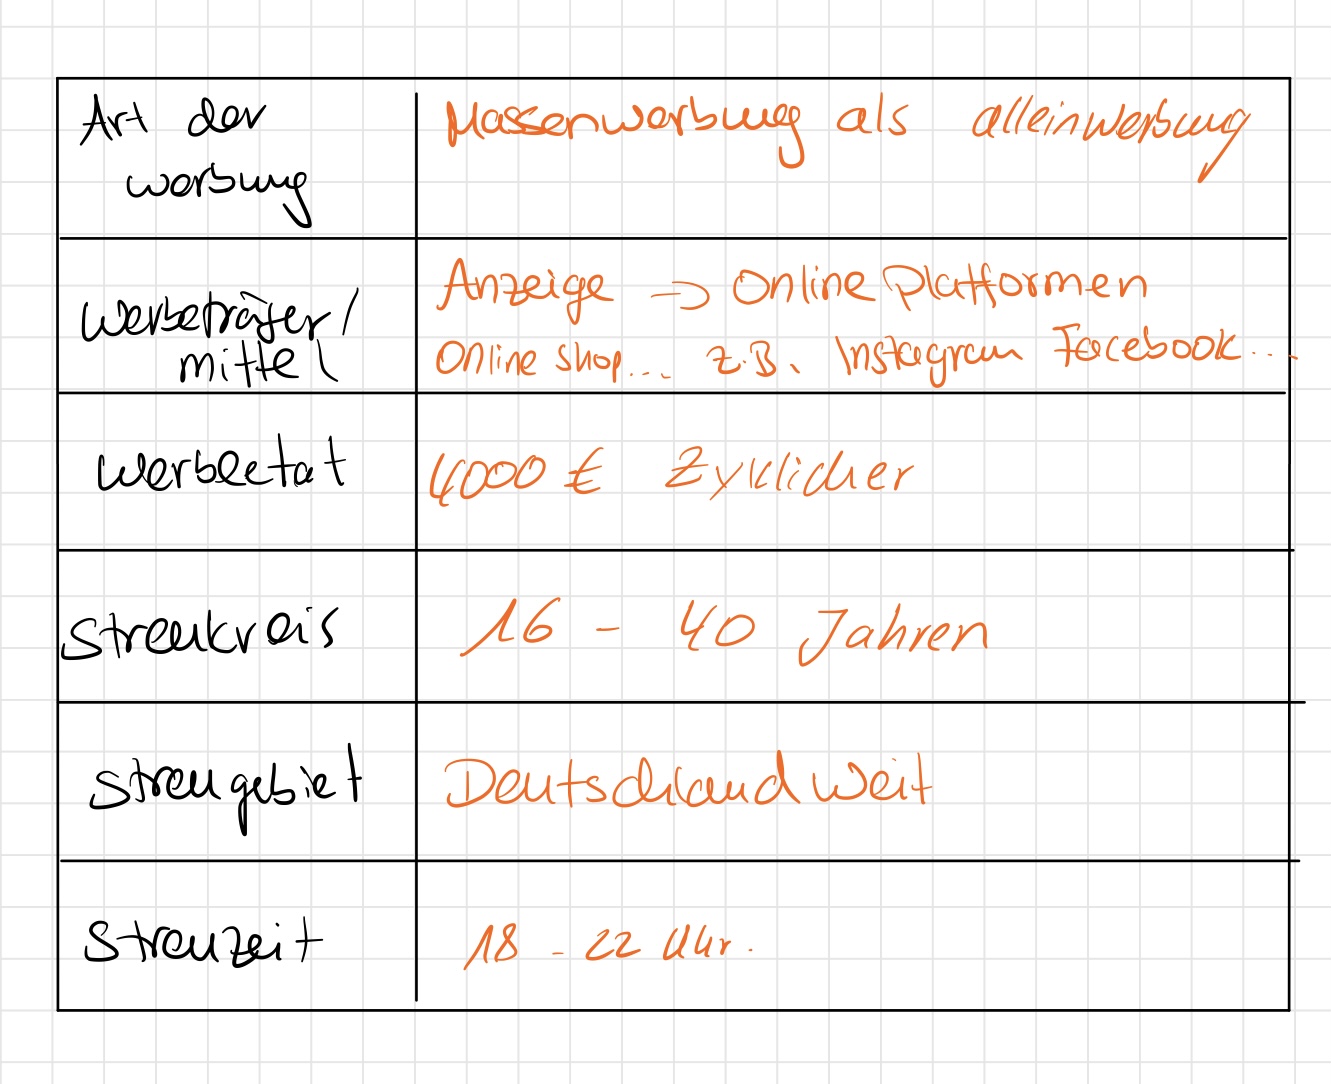 Art der
werbung
Massenwerbung als alleinwerbung
Werbeträger/
mittel
Anzeige → Online Platformen
Online Shop... z.B. Instagram Facebook...
Werbeetat
4000 € Zyklicher
Streukreis
16 - 40 Jahren
Streugebiet
Deutschland Weit
Streuzeit
18 - 22 Uhr.